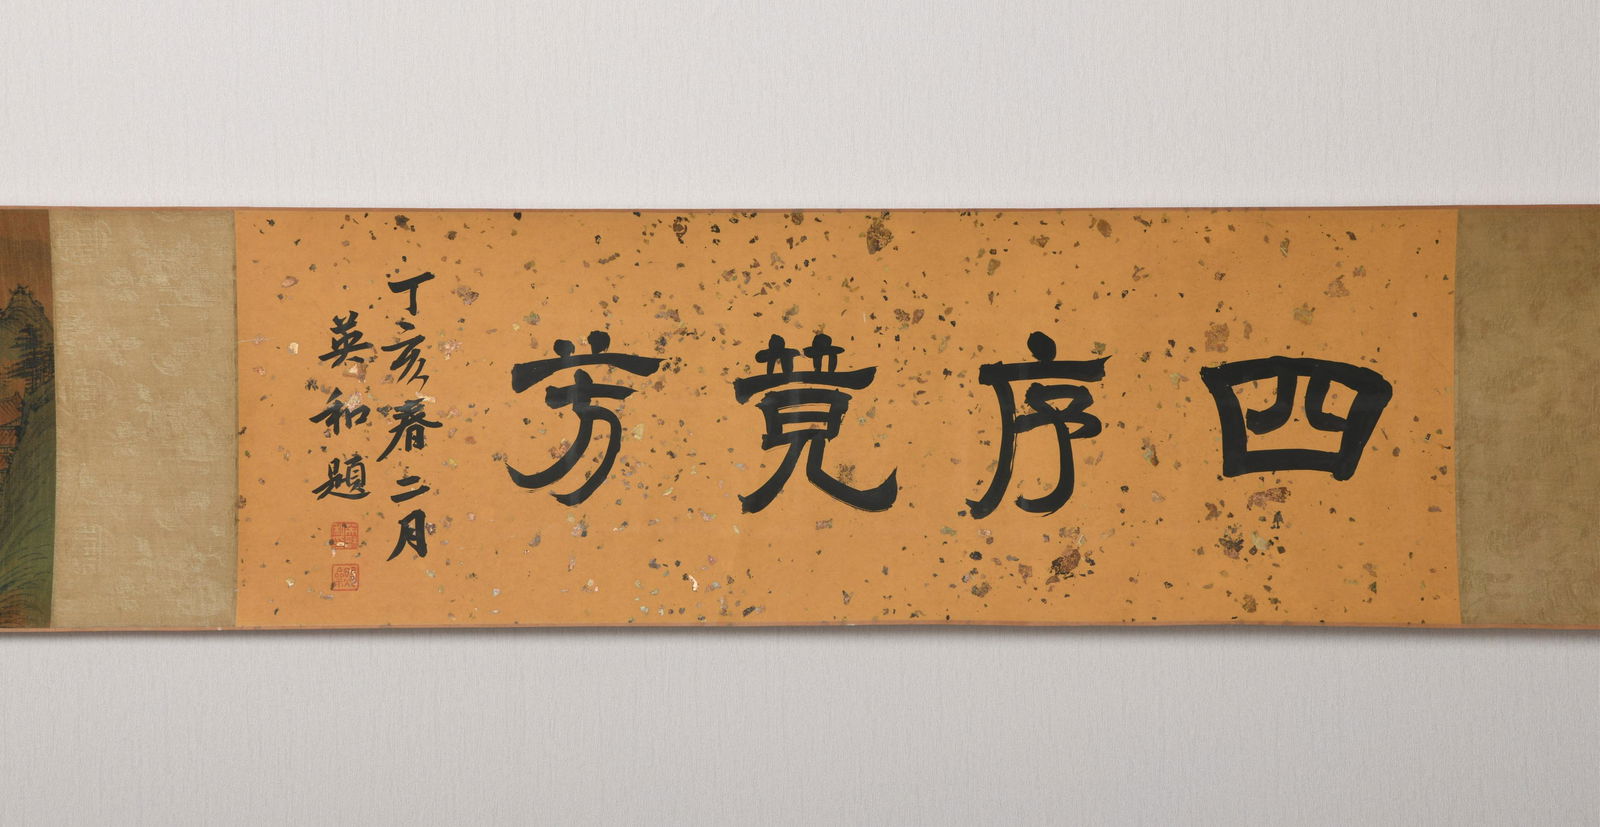 四序竟芳
丁亥春二月
英和題